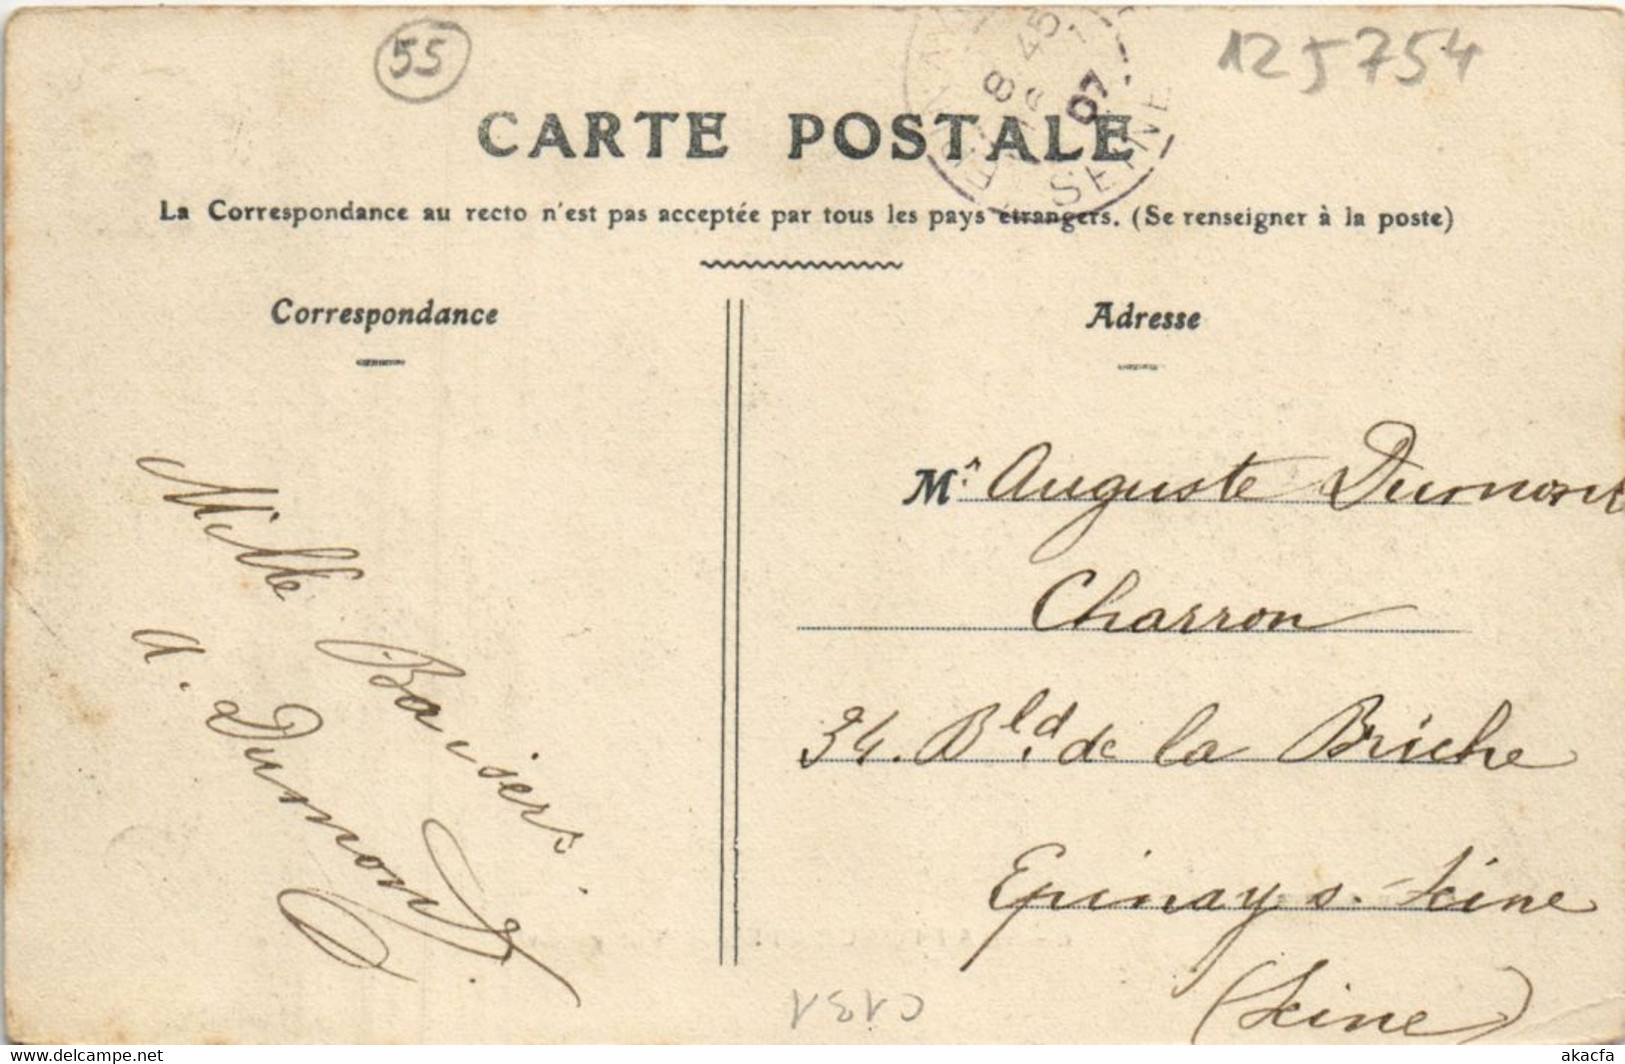 55
125754
8 45
07
SEINE
CARTE POSTALE
La Correspondance au recto n'est pas acceptée par tous les pays étrangers. (Se renseigner à la poste)
Correspondance
Mille Baisers.
A. Dumont
Adresse
Mr Auguste Dumont
Charron
34. Bld de la Briche
Epinay s. Seine
(Seine)
C131
www.delcampe.net
akacfa